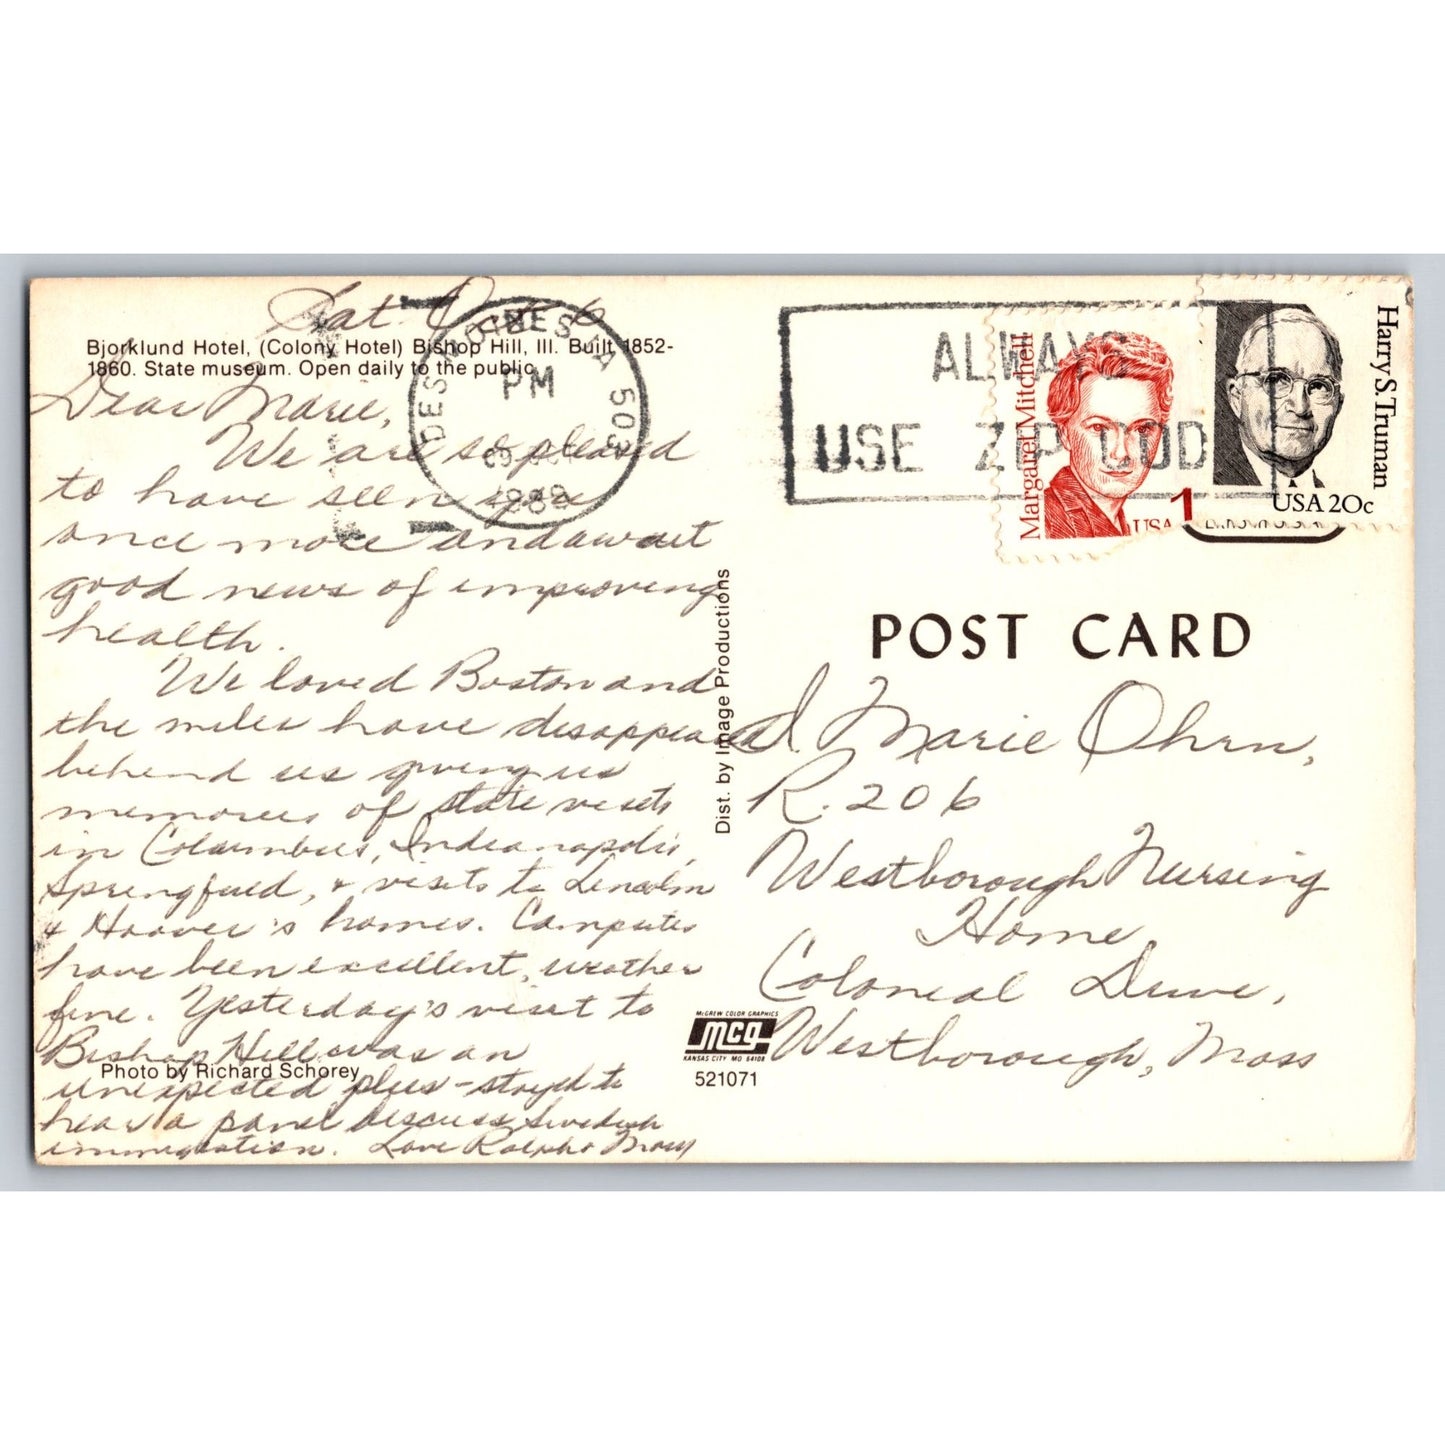 Sat. Oct 6
Bjorklund Hotel, (Colony Hotel) Bishop Hill, Ill. Built 1852-
1860. State museum. Open daily to the public.
Dear Marie,
We are so pleased
to have seen you
once more and await
good news of improving
health.
We loved Boston and
the miles have disappeared
behind us giving us
memories of state visits
in Columbus, Indianapolis,
Springfield, & visits to Lincoln
& Hoover's homes. Computer
have been excellent, weather
fine. Yesterday's visit to
Bishop Hill was an
unexpected plus - stayed to
hear a panel discuss Swedish
immigration. Love Ralph &
Photo by Richard Schorey
DES MOINES IA 503
PM
1988
ALWAYS
USE ZIP COD
Margaret Mitchell
USA 1
Harry S. Truman
USA 20c
Dist. by Image Productions
POST CARD
Marie Ohrn,
R. 206
Westborough Nursing
Home
Colonial Drive,
Westborough, Mass
McGREW COLOR GRAPHICS
mcg
KANSAS CITY MO 64108
521071